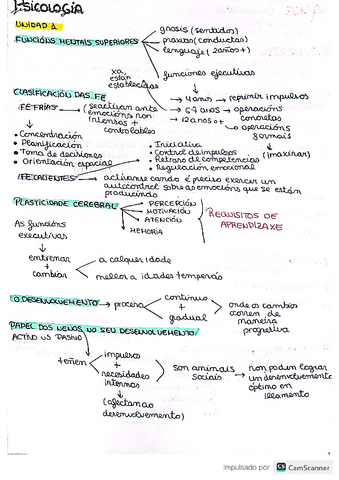 PSICOLOGÍA
UNIDAD 1
FUNCIÓNS MENTAIS SUPERIORES
gnosis (sentidos)
praxias (conductas)
lenguaje (2 años +)
funciones ejecutivas
xa están establecidas
CLASIFICACIÓN DAS FE
→ 4 anos → reprimir impulsos
→ 6-7 anos → operacións concretas
→ 12 anos ++ → operacións formais
(imaxinar)
FE FRÍAS → (se activan ante emocións non intensas + controlables
• Concentración
• Planificación
• Toma de decisiones
• Orientación espacial
• Iniciativa
• Control de impulsos
• Retraso de competencias
• Regulación emocional
FE CALIENTES → actívanse cando é preciso exercer un autocontrol sobre as emocións que se están producindo
PLASTICIDADE CEREBRAL
PERCEPCIÓN
MOTIVACIÓN
ATENCIÓN
MEMORIA
REQUISITOS DE APRENDIZAXE
As funcións executivas
↓
entrenar + cambiar
a calquer idade
mellor a idades temperás
O DESENVOLVEMENTO → proceso
continuo + gradual
onde os cambios ocorren de maneira progresiva
PAPEL DOS NENOS NO SEU DESENVOLVEMENTO
ACTIVO VS PASIVO
teñen
impulsos + necesidades internas
↓
(afectan ao desenvolvemento)
son animais sociais → non poden lograr un desenvolvemento óptimo en illamento
impulsado por CS CamScanner